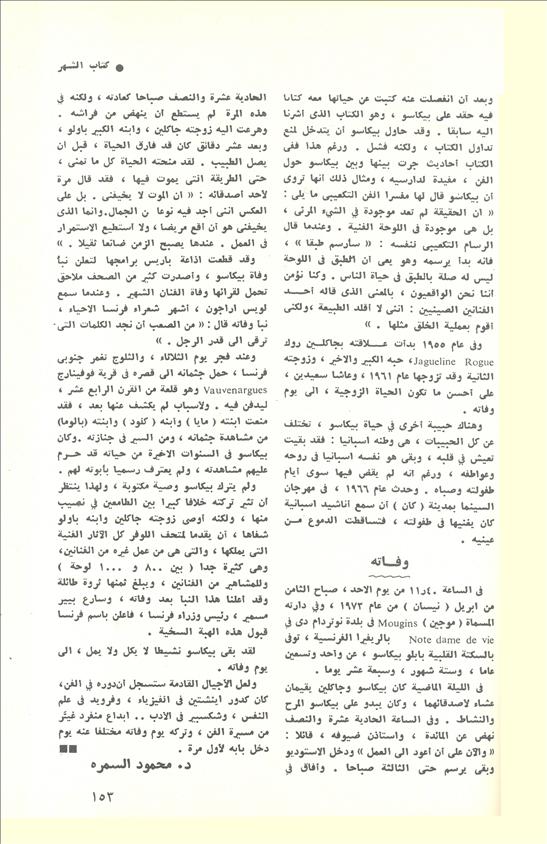 ● كتاب الشهر
وبعد أن انفصلت عنه كتبت عن حياتها معه كتابا
فيه حقد على بيكاسو ، وهو الكتاب الذى أشرنا
اليه سابقا . وقد حاول بيكاسو أن يتدخل لمنع
تداول الكتاب ، ولكنه فشل . ورغم هذا ففى
الكتاب أحاديث جرت بينها وبين بيكاسو حول
الفن ، مفيدة لدارسيه ، ومثال ذلك أنها تروى
أن بيكاسو قال لها مفسرا الفن التكعيبى ما يلى :
« ان الحقيقة لم تعد موجودة في الشىء المرئى ،
بل هى موجودة في اللوحة الفنية . وعندما قال
الرسام التكعيبى لنفسه : « سأرسم طبقا » ،
فانه بدأ يرسمه وهو يعى أن الطبق في اللوحة
ليس له صلة بالطبق في حياة الناس . وكنا نؤمن
أننا نحن الواقعيون ، بالمعنى الذى قاله أحد
الفنانين الصينيين : اننى لا أقلد الطبيعة ،ولكنى
أقوم بعملية الخلق مثلها . »
وفى عام ١٩٥٥ بدأت علاقته بجاكلين روك
Jagueline Rogue، حبه الكبير والأخير ، وزوجته
الثانية وقد تزوجها عام ١٩٦١ ، وعاشا سعيدين ،
على أحسن ما تكون الحياة الزوجية ، الى يوم
وفاته .
وهناك حبيبة أخرى في حياة بيكاسو ، تختلف
عن كل الحبيبات ، هى وطنه اسبانيا : فقد بقيت
تعيش في قلبه ، وبقى هو نفسه اسبانيا في روحه
وعواطفه ، ورغم أنه لم يقض فيها سوى أيام
طفولته وصباه . وحدث عام ١٩٦٦ ، في مهرجان
السينما بمدينة ( كان ) أن سمع أناشيد اسبانية
كان يغنيها في طفولته ، فتساقطت الدموع من
عينيه .
وفاته
فى الساعة ١١٫٤٠ من يوم الأحد ، صباح الثامن
من ابريل ( نيسان ) من عام ١٩٧٣ ، وفي دارته
المسماة (موجين) Mougins فى بلدة نوتردام دى في
Note dame de vie بالريفيرا الفرنسية ، توفى
بالسكتة القلبية بابلو بيكاسو ، عن واحد وتسعين
عاما ، وستة شهور ، وسبعة عشر يوما .
في الليلة الماضية كان بيكاسو وجاكلين يقيمان
عشاء لأصدقائهما ، وكان يبدو على بيكاسو المرح
والنشاط . وفى الساعة الحادية عشرة والنصف
نهض عن المائدة ، واستأذن ضيوفه ، قائلا :
« والآن على أن أعود الى العمل » ودخل الاستوديو
وبقى يرسم حتى الثالثة صباحا . وأفاق في
الحادية عشرة والنصف صباحا كعادته ، ولكنه في
هذه المرة لم يستطع أن ينهض من فراشه .
وهرعت اليه زوجته جاكلين ، وابنه الكبير باولو ،
وبعد عشر دقائق كان قد فارق الحياة ، قبل أن
يصل الطبيب . لقد منحته الحياة كل ما تمنى ،
حتى الطريقة التى يموت فيها ، فقد قال مرة
لأحد أصدقائه : « ان الموت لا يخيفنى . بل على
العكس اننى أجد فيه نوعا من الجمال.وانما الذى
يخيفنى هو أن أقع مريضا ، ولا أستطيع الاستمرار
في العمل . عندها يصبح الزمن ضائعا ثقيلا . »
وقد قطعت اذاعة باريس برامجها لتعلن نبأ
وفاة بيكاسو ، وأصدرت كثير من الصحف ملاحق
تحمل لقرائها وفاة الفنان الشهير . وعندما سمع
لويس أراجون ، أشهر شعراء فرنسا الأحياء ،
نبأ وفاته قال : « من الصعب أن نجد الكلمات التى
ترقى الى قدر الرجل . »
وعند فجر يوم الثلاثاء ، والثلوج تغمر جنوبى
فرنسا ، حمل جثمانه الى قصره في قرية فوفينارج
Vauvenargues وهو قلعة من القرن الرابع عشر ،
ليدفن فيه . ولأسباب لم يكشف عنها بعد ، فقد
منعت ابنته ( مايا ) وابنه ( كلود ) وابنته (بالوما)
من مشاهدة جثمانه ، ومن السير فى جنازته .وكان
بيكاسو فى السنوات الأخيرة من حياته قد حرم
عليهم مشاهدته ، ولم يعترف رسميا بأبوته لهم .
ولم يترك بيكاسو وصية مكتوبة ، ولهذا ينتظر
أن تثير تركته خلافا كبيرا بين الطامعين في نصيب
منها ، ولكنه أوصى زوجته جاكلين وابنه باولو
شفاها ، أن يقدما لمتحف اللوفر كل الآثار الفنية
التى يملكها ، والتى هى من عمل غيره من الفنانين،
وهى كثيرة جدا ( بين ٨٠٠ و ١٠٠٠ لوحة )
وللمشاهير من الفنانين ، ويبلغ ثمنها ثروة طائلة
وقد أعلنا هذا النبأ بعد وفاته ، وسارع بيير
مسمير ، رئيس وزراء فرنسا ، فأعلن باسم فرنسا
قبول هذه الهبة السخية .
لقد بقى بيكاسو نشيطا لا يكل ولا يمل ، الى
يوم وفاته .
ولعل الأجيال القادمة ستسجل أن دوره في الفن،
كان كدور أينشتين فى الفيزياء ، وفرويد في علم
النفس ، وشكسبير في الأدب .. ابداع منفرد غيّر
من مسيرة الفن ، وتركه يوم وفاته مختلفا عنه يوم
دخل بابه لأول مرة .
د. محمود السمره
١٥٣